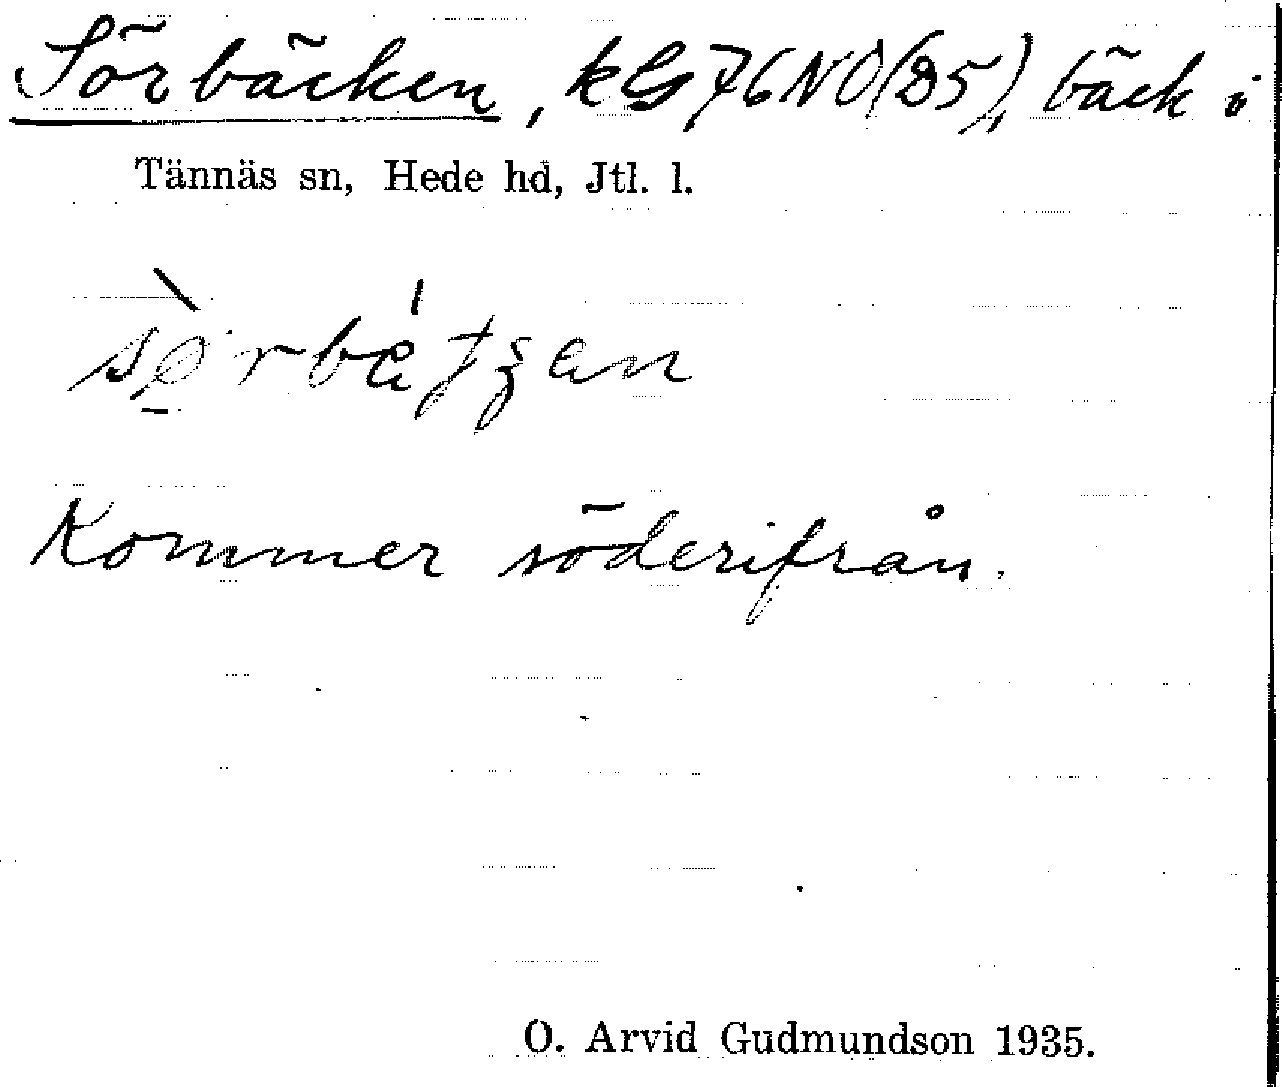 Sörbäcken, kG 76 NO (D5), bäck i
Tännäs sn, Hede hd, Jtl. l.
Kommer söderifrån.
O. Arvid Gudmundson 1935.